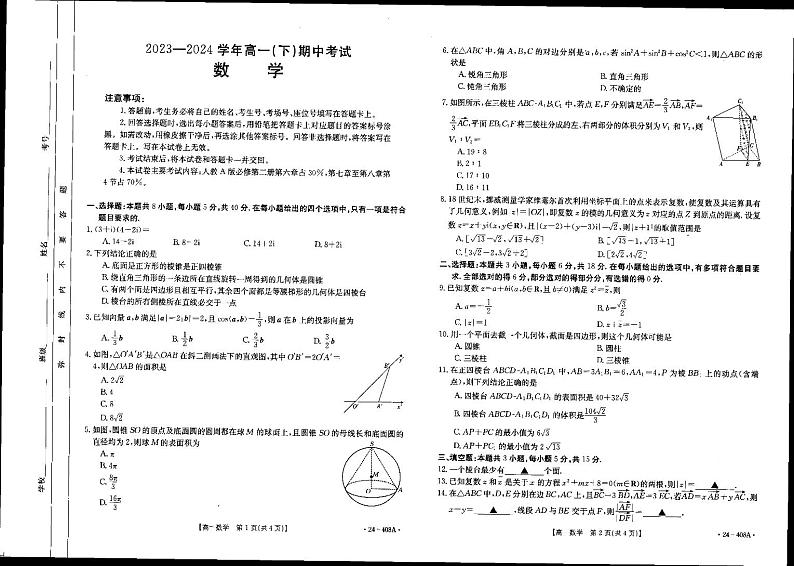 2023—2024 学年高一(下)期中考试
数 学
注意事项:
1. 答题前,考生务必将自己的姓名、考生号、考场号、座位号填写在答题卡上。
2. 回答选择题时,选出每小题答案后,用铅笔把答题卡对应题目的答案标号涂
黑。如需改动,用橡皮擦干净后,再选涂其他答案标号。回答非选择题时,将答案写在
答题卡上。写在本试卷上无效。
3. 考试结束后,将本试卷和答题卡一并交回。
4. 本试卷主要考试内容:人教 A 版必修第二册第六章占 30%,第七章至第八章第
4 节占 70%。
一、选择题:本题共 8 小题,每小题 5 分,共 40 分. 在每小题给出的四个选项中,只有一项是符合
题目要求的.
1. (3+i)(4-2i)=
A. 14-2i B. 8-2i C. 14+2i D. 8+2i
2. 下列结论正确的是
A. 底面是正方形的棱锥是正四棱锥
B. 绕直角三角形的一条边所在直线旋转一周得到的几何体是圆锥
C. 有两个面是四边形且相互平行,其余四个面都是等腰梯形的几何体是四棱台
D. 棱台的所有侧棱所在直线必交于一点
3. 已知向量 a,b 满足|a|=2|b|=2,且 cos⟨a,b⟩=1/3,则 a 在 b 上的投影向量为
A. 1/3 b B. 1/2 b C. 2/3 b D. 3/2 b
4. 如图,△O'A'B'是△OAB 在斜二测画法下的直观图,其中 O'B'=2O'A'=
4,则△OAB 的面积是
A. 2√2
B. 4
C. 8
D. 8√2
5. 如图,圆锥 SO 的顶点及底面圆的圆周都在球 M 的球面上,且圆锥 SO 的母线长和底面圆的
直径均为 2,则球 M 的表面积为
A. π
B. 4π
C. 8π/3
D. 16π/3
【高一数学 第 1 页(共 4 页)】 ·24-408A·
6. 在△ABC 中,角 A,B,C 的对边分别是 a,b,c,若 sin²A+sin²B+cos²C<1,则△ABC 的形
状是
A. 锐角三角形 B. 直角三角形
C. 钝角三角形 D. 不确定的
7. 如图所示,在三棱柱 ABC-A₁B₁C₁ 中,若点 E,F 分别满足 AE=2/3 AB,AF=
2/3 AC,平面 EB₁C₁F 将三棱柱分成的左、右两部分的体积分别为 V₁ 和 V₂,则
V₁:V₂=
A. 19:8
B. 2:1
C. 17:10
D. 16:11
8. 18 世纪末,挪威测量学家维塞尔首次利用坐标平面上的点来表示复数,使复数及其运算具有
了几何意义,例如 |z|=|OZ|,即复数 z 的模的几何意义为 z 对应的点 Z 到原点的距离. 设复
数 z=x+yi(x,y∈R),且|(x-2)+(y-3)i|=√2,则|z+1|的取值范围是
A. [√13-√2,√13+√2] B. [√13-1,√13+1]
C. [3√2-2,3√2+2] D. [2√2,4√2]
二、选择题:本题共 3 小题,每小题 6 分,共 18 分. 在每小题给出的选项中,有多项符合题目要
求. 全部选对的得 6 分,部分选对的得部分分,有选错的得 0 分.
9. 已知复数 z=a+bi(a,b∈R,且 b≠0)满足 z²=z̄,则
A. a=-1/2 B. b=√3/2
C. |z|=1 D. z+z̄=-1
10. 用一个平面去截一个几何体,截面是四边形,则这个几何体可能是
A. 圆锥 B. 圆柱
C. 三棱柱 D. 三棱锥
11. 在正四棱台 ABCD-A₁B₁C₁D₁ 中,AB=3A₁B₁=6,AA₁=4,P 为棱 BB₁ 上的动点(含端
点),则下列结论正确的是
A. 四棱台 ABCD-A₁B₁C₁D₁ 的表面积是 40+32√3
B. 四棱台 ABCD-A₁B₁C₁D₁ 的体积是 104√2/3
C. AP+PC 的最小值为 6√3
D. AP+PC₁ 的最小值为 2√13
三、填空题:本题共 3 小题,每小题 5 分,共 15 分.
12. 一个棱台最少有 ▲ 个面.
13. 已知复数 z 和 z̄ 是关于 x 的方程 x²+mx+8=0(m∈R)的两根,则|z|= ▲ .
14. 在△ABC 中,D,E 分别在边 BC,AC 上,且 BC=3BD,AE=3FC,若 AD=xAB+yAC,则
x-y= ▲ ,线段 AD 与 BE 交于点 F,则 |AF|/|DF| = ▲ .
【高一数学 第 2 页(共 4 页)】 ·24-408A·
学校
班级
姓名
考号
密 封 线 内 不 要 答 题